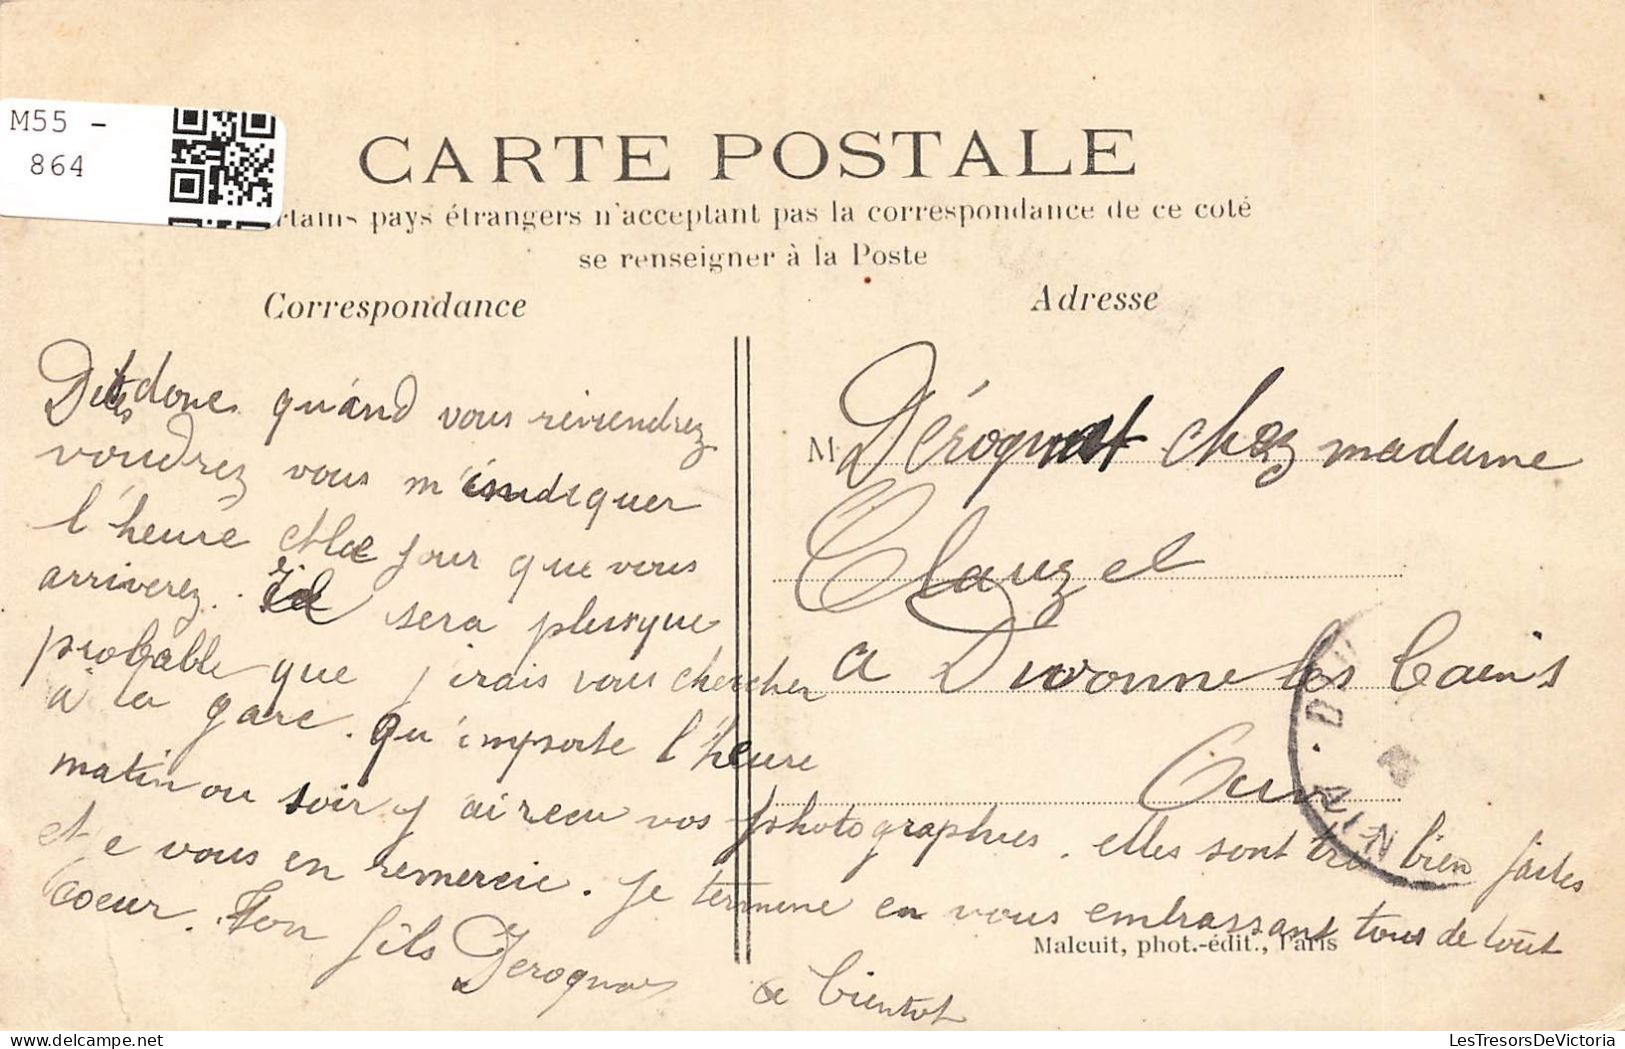 M55 -
864
CARTE POSTALE
rtains pays étrangers n'acceptant pas la correspondance de ce coté
se renseigner à la Poste
Correspondance
Adresse
Dites donc quánd vous reviendrez
voudrez vous m'indiquer
l'heure et le jour que vous
arriverez. il sera plusque
probable que j'irais vous chercher
à la gare. qu'importe l'heure
matin ou soir j'ai recu vos photographies. elles sont tres bien faites
et je vous en remercie. Je termine en vous embrassant tous de tout
coeur. Ton fils Derognat
a bientot
M Dérognat chez madame
Clauzel
a Divonne les bains
Ain
AIN
Malcuit, phot.-édit., Paris
LesTresorsDeVictoria